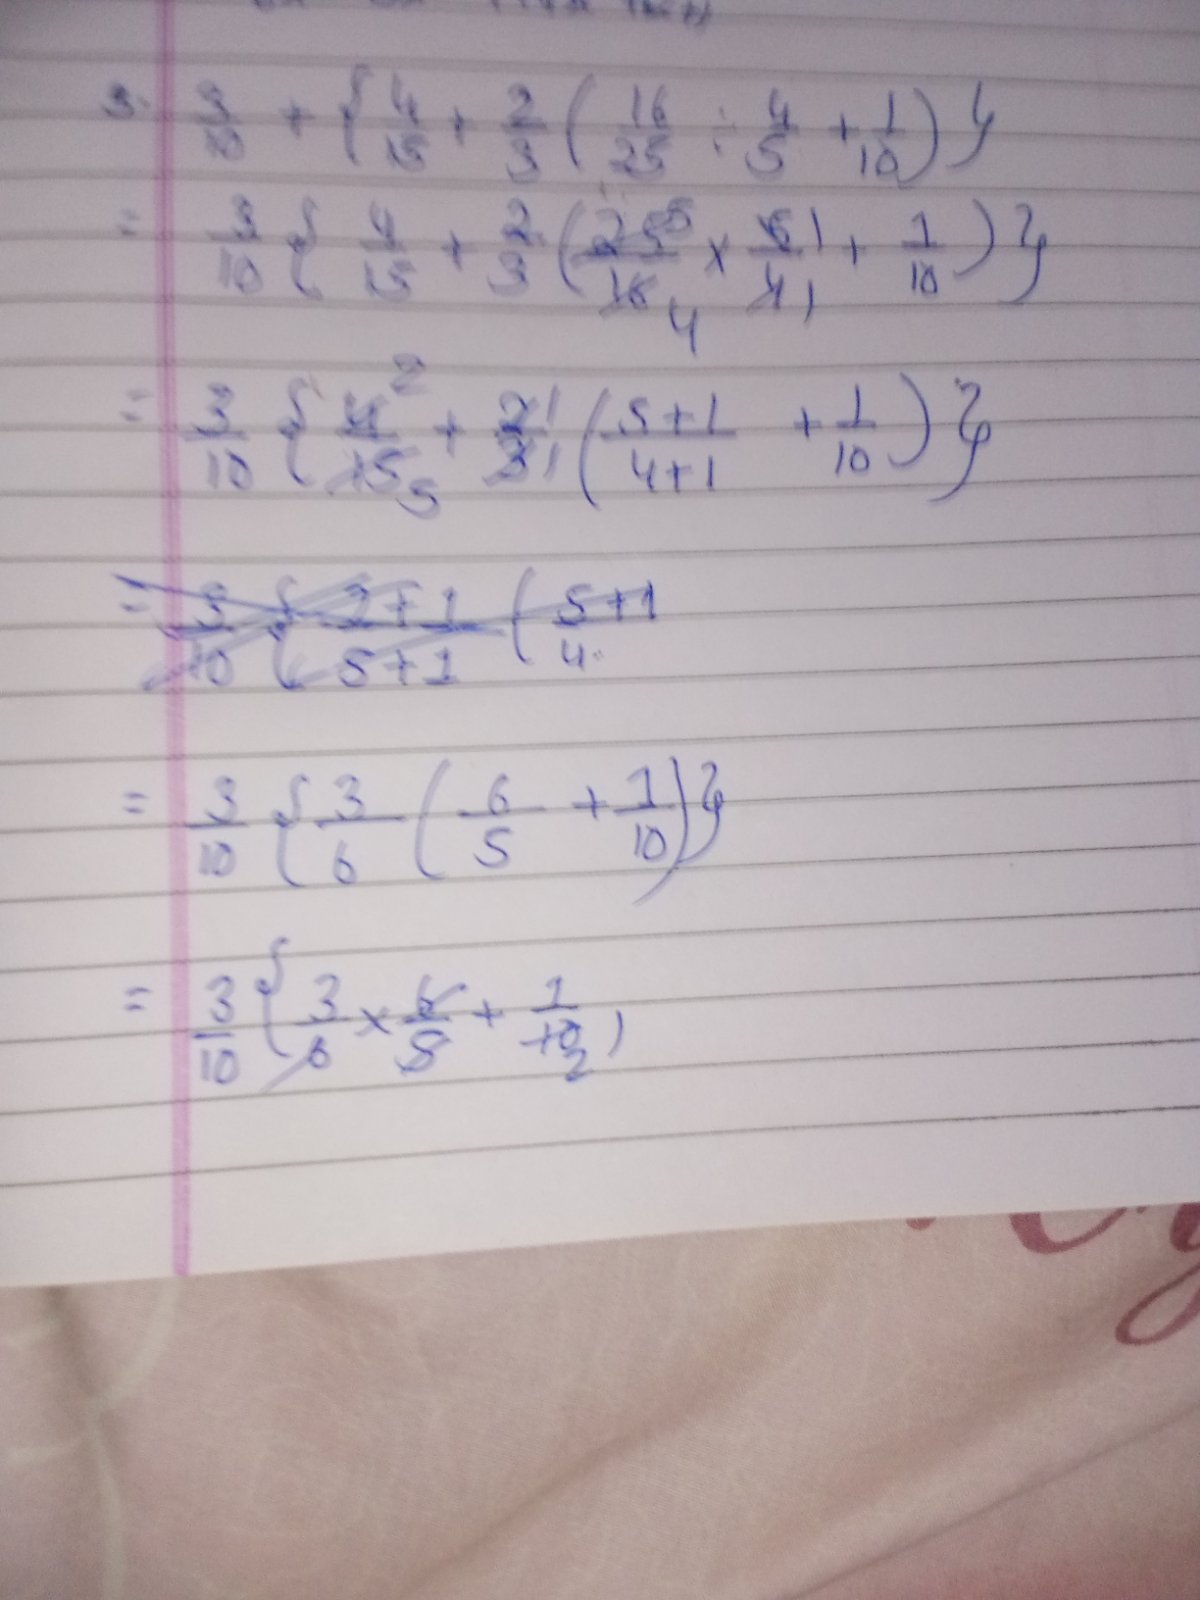 3. 3/10 + { 4/15 + 2/3 ( 16/25 ÷ 4/5 + 1/10 ) }
= 3/10 { 4/15 + 2/3 ( 25 5/16 4 × 5 1/4 1 + 1/10 ) }
= 3/10 { 4 2/15 5 + 2 1/3 1 ( 5+1/4+1 + 1/10 ) }
= 3/10 { 2+1/5+1 ( 5+1/4
= 3/10 { 3/6 ( 6/5 + 1/10 ) }
= 3/10 { 3/6 × 6/5 + 1/10 2 )